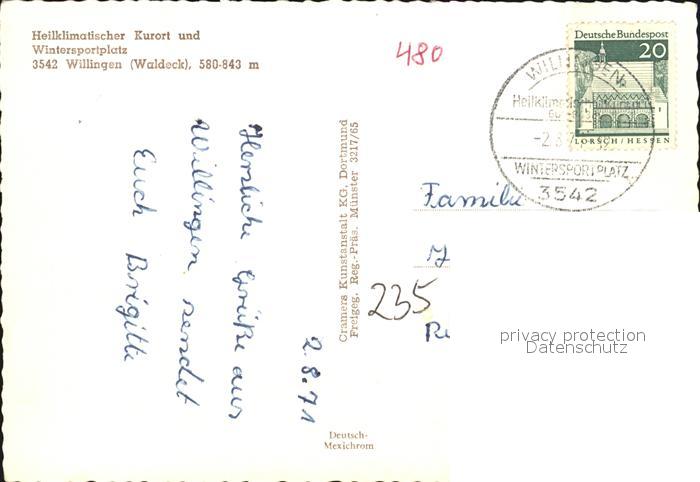 Heilklimatischer Kurort und
Wintersportplatz
3542 Willingen (Waldeck), 580-843 m
480
Deutsche Bundespost
20
LORSCH/HESSEN
WILLINGEN
Heilklimatischer
WINTERSPORTPLATZ
3542
2.8.71
Herzliche Grüße aus
Willingen sendet
Euch Brigitte
Cramers Kunstanstalt KG, Dortmund
Freigeg. Reg.-Präs. Münster 3217/65
Familie
235
privacy protection
Datenschutz
Deutsch-
Mexichrom